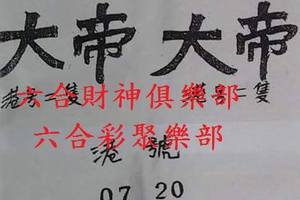 大帝 大帝
港号二隻 港号二隻
六合財神俱樂部
六合彩聚樂部
港號
07 20